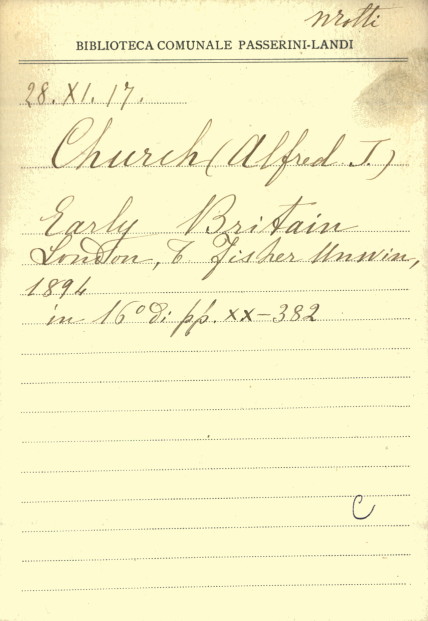 BIBLIOTECA COMUNALE PASSERINI-LANDI
28. XI. 17.
Church (Alfred J.)
Early Britain
London, T Fisher Unwin,
1894
in 16° di pp. xx-382
C